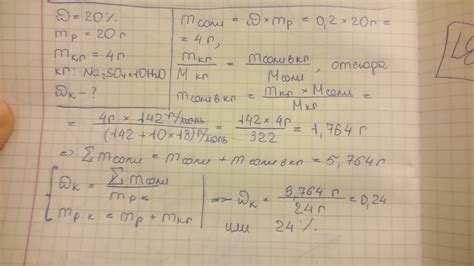 ω = 20%
mр = 20 г
mкг = 4 г
кг: Na₂SO₄×10H₂O
ωк - ?
mсоли = ω × mр = 0,2 × 20 г =
= 4 г,
mкг / Mкг = mсоли в кг / Mсоли, отсюда
mсоли в кг = mкг × Mсоли / Mкг =
= 4 г × 142 г/моль / (142 + 10×18) г/моль = 142 × 4 г / 322 = 1,764 г
⇒ ∑ mсоли = mсоли + mсоли в кг = 5,764 г
{ ωк = ∑ mсоли / mр.к
mр.к = mр + mкг
⇒ ωк = 5,764 г / 24 г = 0,24
или 24%.